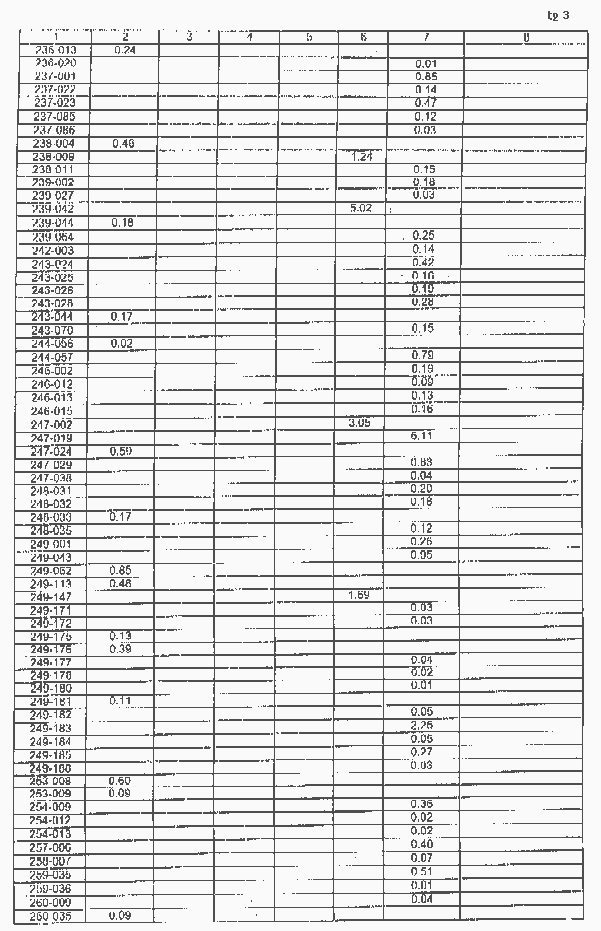 tp 3
1 2 3 4 5 6 7 8
236-013 0.24
236-020 0.01
237-001 0.85
237-022 0.14
237-023 0.47
237-085 0.12
237-086 0.03
238-004 0.46
238-009 1.24
238-011 0.15
239-002 0.18
239-027 0.03
239-042 5.02
239-044 0.18
239-064 0.25
242-003 0.14
243-024 0.42
243-025 0.16
243-026 0.19
243-028 0.28
243-044 0.17
243-070 0.15
244-056 0.02
244-057 0.79
246-002 0.19
246-012 0.09
246-013 0.13
246-015 0.16
247-002 3.05
247-019 6.11
247-024 0.59
247-029 0.83
247-038 0.04
248-031 0.20
248-032 0.18
248-033 0.17
248-035 0.12
249-001 0.26
249-043 0.05
249-062 0.85
249-113 0.48
249-147 1.69
249-171 0.03
249-172 0.03
249-175 0.13
249-176 0.39
249-177 0.04
249-178 0.02
249-180 0.01
249-181 0.11
249-182 0.05
249-183 2.26
249-184 0.05
249-185 0.27
249-186 0.03
253-008 0.60
253-009 0.09
254-009 0.36
254-012 0.02
254-013 0.02
257-006 0.40
258-007 0.07
259-035 0.51
259-036 0.01
260-009 0.04
260-035 0.09